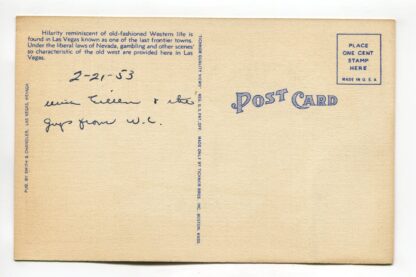 Hilarity reminiscent of old-fashioned Western life is
found in Las Vegas known as one of the last frontier towns.
Under the liberal laws of Nevada, gambling and other scenes
so characteristic of the old west are provided here in Las
Vegas.
2-21-53
& the
guys from W.C.
PUB. BY SMITH & CHANDLER, LAS VEGAS, NEVADA
TICHNOR QUALITY VIEWS
REG. U. S. PAT. OFF. MADE ONLY BY TICHNOR BROS. INC., BOSTON, MASS.
POST CARD
PLACE
ONE CENT
STAMP
HERE
MADE IN U.S.A.